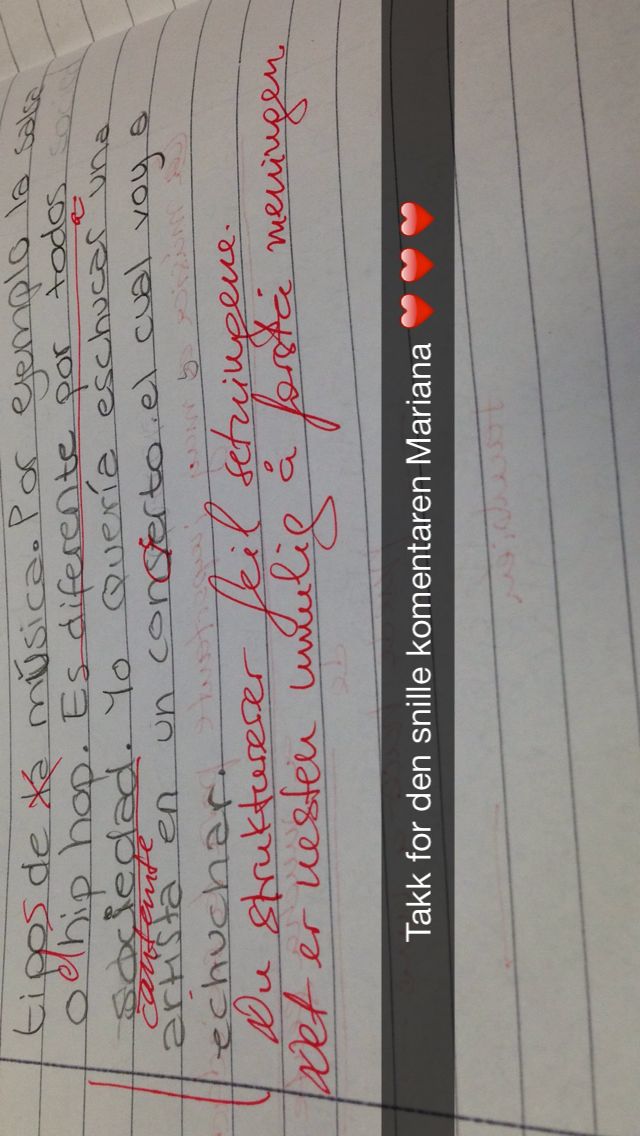 tipos de la música. Por ejemplo la salsa
o el hip hop. Es diferente por todos a
sociedad. Yo quería eschucar una
cantante
artista en un concierto el cual voy a
echuchar.
Du strukturerer feil setningene.
Det er nesten umulig å forstå meningen.
Takk for den snille komentaren Mariana ❤️❤️❤️